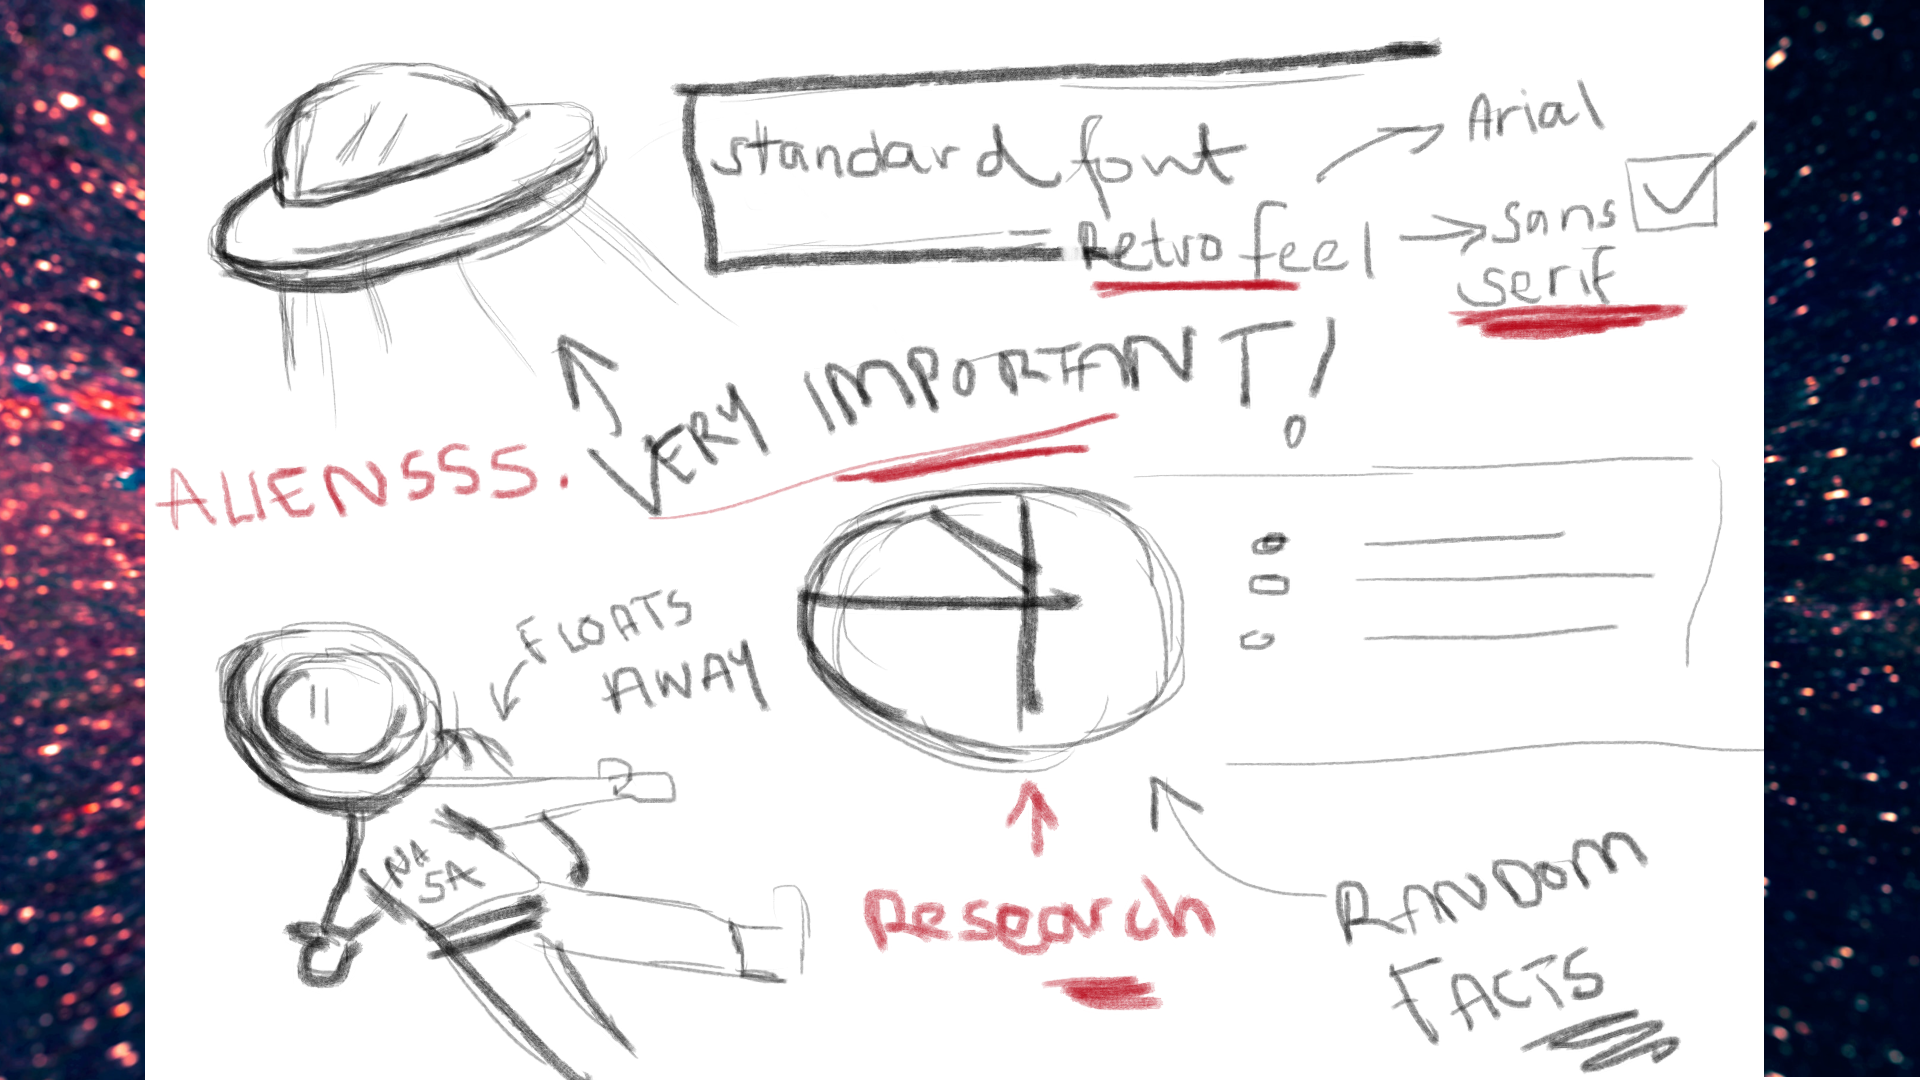 standard font
Arial
= Retro feel
sans
serif
VERY IMPORTANT!
ALIENSSS.
FLOATS
AWAY
NA
SA
Research
RANDOM
FACTS